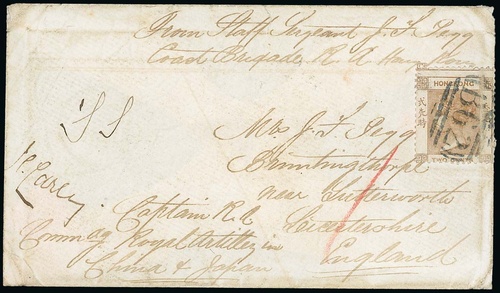 From Staff Sergeant J. F. Pegg
Coast Brigade R. A. Hong Kong
HONG KONG
B62
TWO CENTS
Mrs J. F. Pegg
Bruntingthorpe
near Lutterworth
Leicestershire
England
Carey
Captain R.A.
Commdg Royal Artillery in
China & Japan